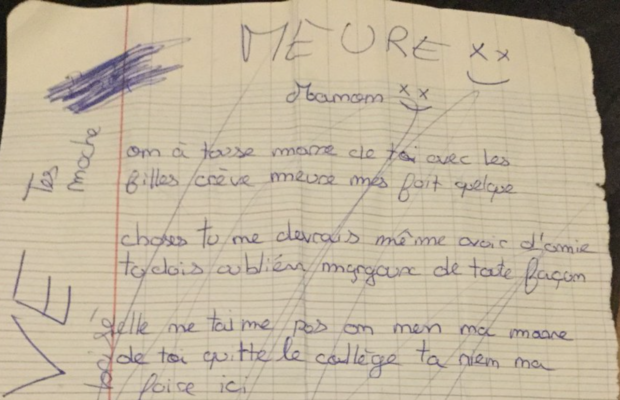 MEURE xx
Mamam xx
T'es moche
om à tousse marre de toi avec les
filles crève meure mes fait quelque
choses tu me devrais même avoir d'amie
ta dois oublién margaux de toute façon
elle ne t'aime pas on men ma marre
de toi quitte le collège ta riem ma
foire ici
VE